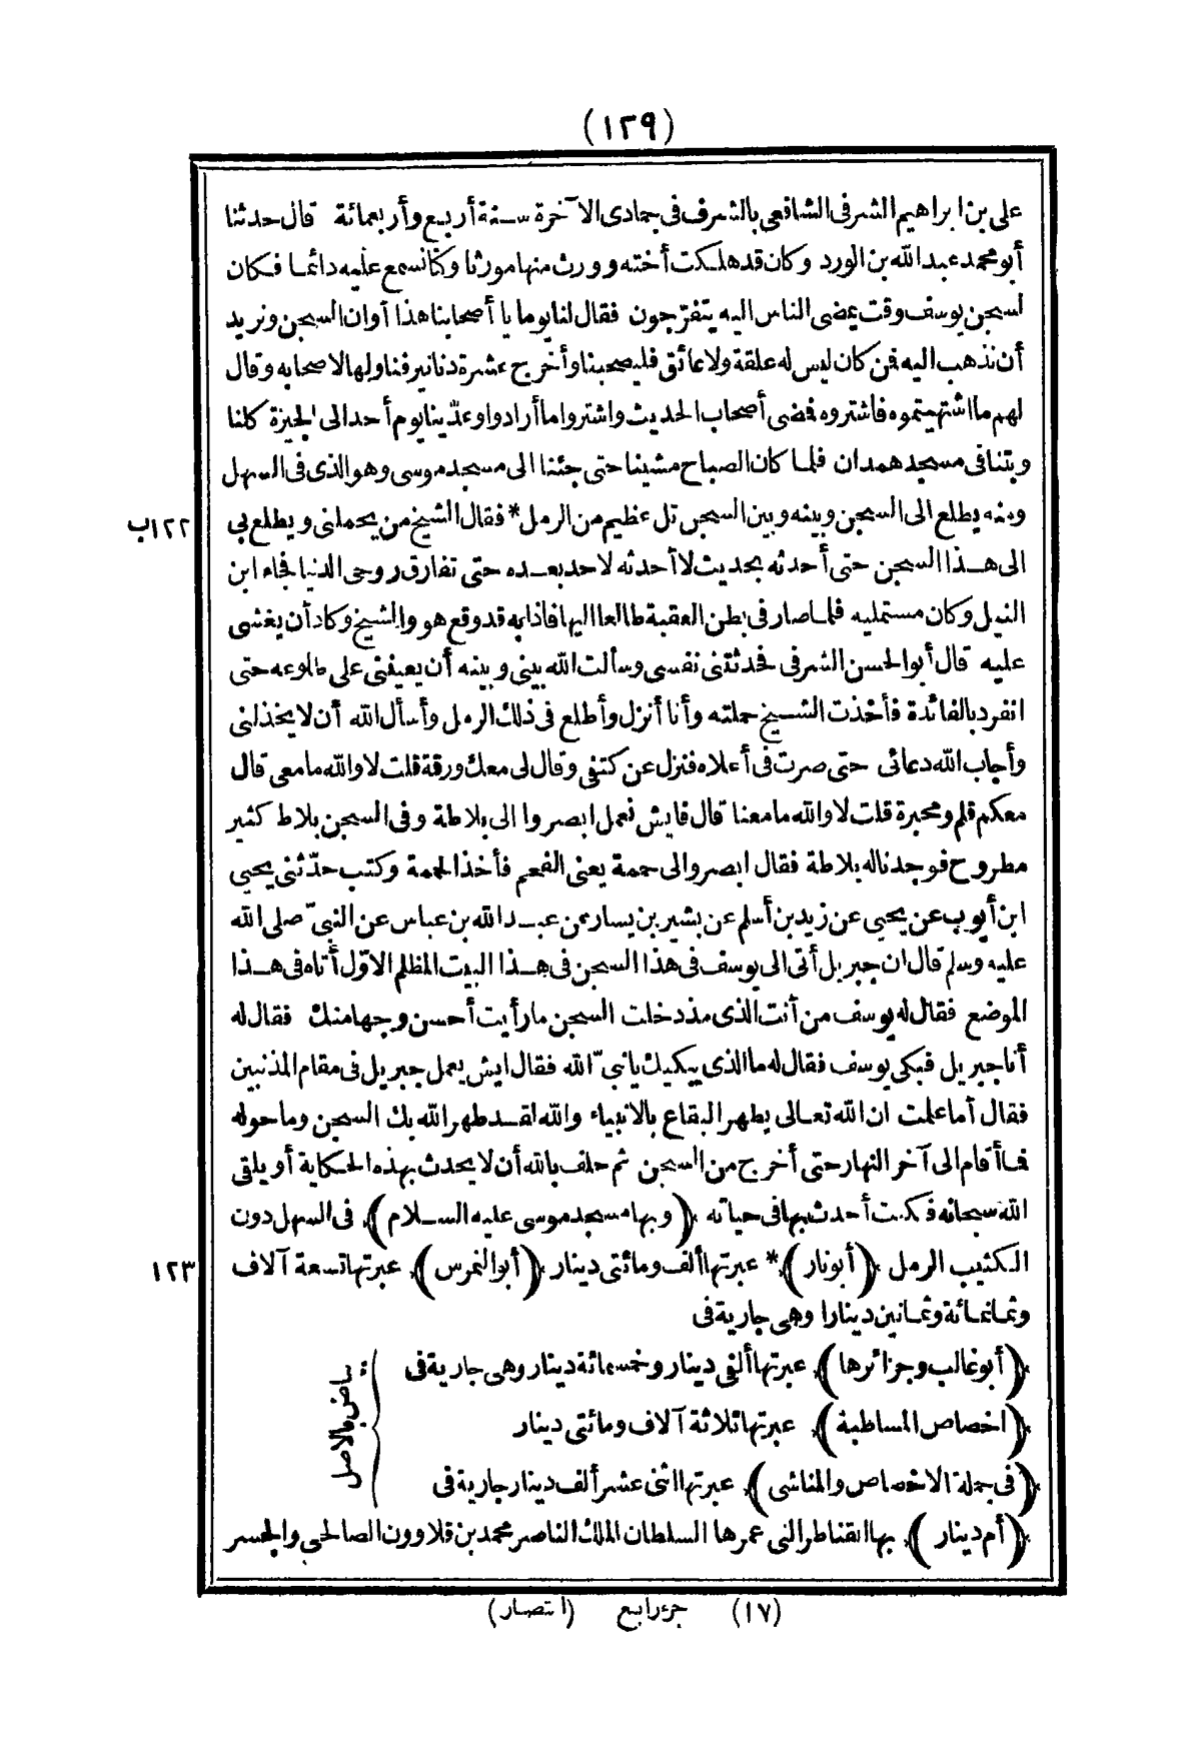 (١٢٩)
على بن ابراهيم الشرفى الشافعى بالشرف فى جمادى الآخرة سنة أربع وأربعمائة قال حدثنا
أبو محمد عبد الله بن الورد وكان قد هلكت أخته وورث منها مورثا وكنا نسمع عليه دائما فكان
لسجن يوسف وقت يمضى الناس اليه يتفرّجون فقال لنا يوما يا أصحابنا هذا أوان السجن ونريد
أن نذهب اليه فمن كان ليس له علقة ولا عائق فليصحبنا وأخرج عشرة دنانير فناولها لاصحابه وقال
لهم ما اشتهيتموه فاشتروه فمضى أصحاب الحديث واشتروا ما أرادوا وعدّينا يوم أحد الى الجيزة كلنا
وبتنا فى مسجد همدان فلما كان الصباح مشينا حتى جئنا الى مسجد موسى وهو الذى فى السهل
ومنه يطلع الى السجن وبينه وبين السجن تل عظيم من الرمل * فقال الشيخ من يحملنى ويطلع بى
١٢٢ب
الى هذا السجن حتى أحدثه بحديث لا أحدثه لاحد بعده حتى تفارق روحى الدنيا فجاء ابن
النيل وكان مستمليه فلما صار فى بطن العقبة طالعا اليها فاذا به قد وقع هو والشيخ وكاد أن يغشى
عليه قال أبو الحسن الشرفى فحدثتنى نفسى وسألت الله بينى وبينه أن يعيننى على طلوعه حتى
انفرد بالفائدة فأخذت الشيخ حملته وأنا أنزل وأطلع فى ذلك الرمل وأسأل الله أن لا يخذلنى
وأجاب الله دعائى حتى صرت فى أعلاه فنزل عن كتفى وقال لى معك ورقة قلت لا والله ما معى قال
معكم قلم ومحبرة قلت لا والله ما معنا قال فايش نعمل ابصروا الى بلاطة وفى السجن بلاط كثير
مطروح فوجدنا له بلاطة فقال ابصروا لى حممة يعنى الفحم فأخذ الحممة وكتب حدّثنى يحيى
ابن أيوب عن يحيى عن زيد بن أسلم عن بشير بن يسار عن عبد الله بن عباس عن النبىّ صلى الله
عليه وسلم قال ان جبريل أتى الى يوسف فى هذا السجن فى هذا البيت المظلم الاوّل أتاه فى هذا
الموضع فقال له يوسف من أنت الذى مذ دخلت السجن ما رأيت أحسن وجها منك فقال له
أنا جبريل فبكى يوسف فقال له ما الذى يبكيك يا نبىّ الله فقال ايش يعمل جبريل فى مقام المذنبين
فقال أما علمت ان الله تعالى يطهر البقاع بالانبياء والله لقد طهر الله بك السجن وما حوله
فما أقام الى آخر النهار حتى أخرج من السجن ثم حلف بالله أن لا يحدث بهذه الحكاية أو يلقى
الله سبحانه فكنت أحدث بها فى حياته (وبها مسجد موسى عليه السلام) فى السهل دون
الكثيب الرمل (أبو نار) * عبرتها ألف ومائتى دينار (أبو النمرس) عبرتها تسعة آلاف
١٢٣
وثمانمائة وثمانين دينارا وهى جارية فى
(أبو غالب وجزائرها) عبرتها ألفى دينار وخمسمائة دينار وهى جارية فى
(اخصاص المساطبة) عبرتها ثلاثة آلاف ومائتى دينار
(فى جملة الاخصاص والمناشى) عبرتها اثنى عشر ألف دينار جارية فى
بياض بالاصل
(أم دينار) بها القناطر التى عمرها السلطان الملك الناصر محمد بن قلاوون الصالحى والجسر
(١٧) جزء رابع (انتصار)